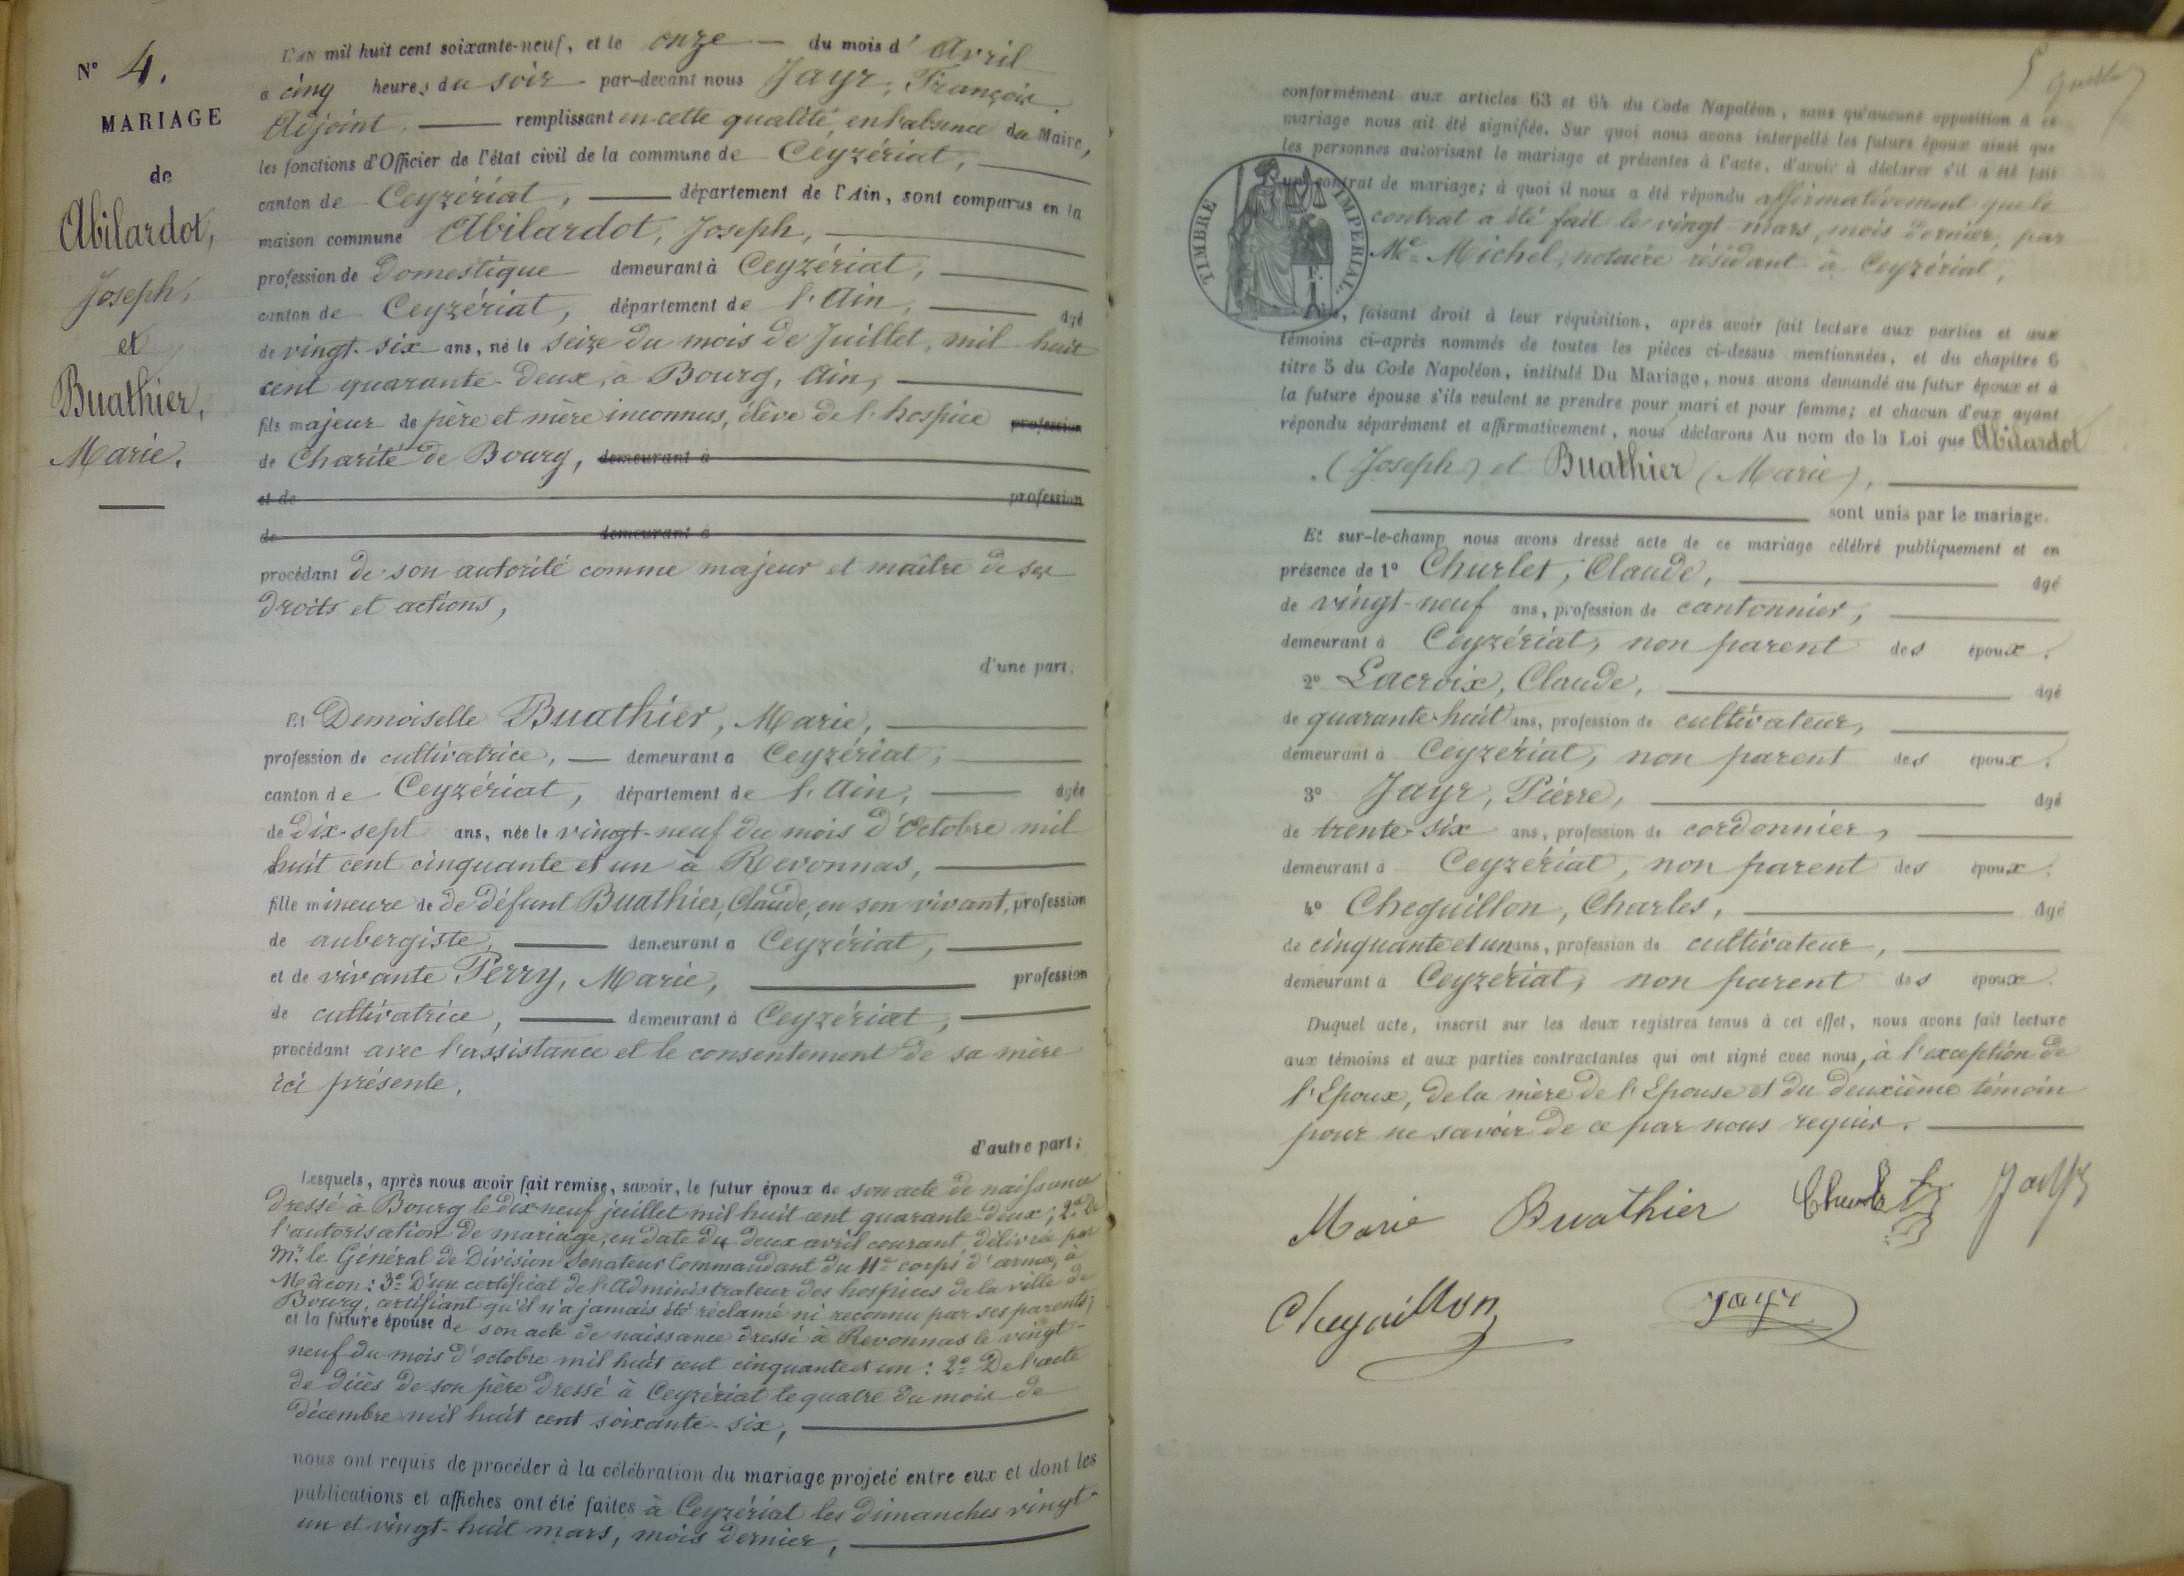 N° 4.
MARIAGE
de
Abilardot,
Joseph,
et
Buathier,
Marie.
L'an mil huit cent soixante-neuf, et le onze du mois d'Avril
à cinq heures du soir par-devant nous Jayr, François,
Adjoint, remplissant en cette qualité, en l'absence du Maire,
les fonctions d'Officier de l'état civil de la commune de Ceyzériat,
canton de Ceyzériat, département de l'Ain, sont comparus en la
maison commune Abilardot, Joseph,
profession de Domestique demeurant à Ceyzériat,
canton de Ceyzériat, département de l'Ain, âgé
de vingt-six ans, né le seize du mois de Juillet, mil huit
cent quarante-deux, à Bourg, Ain,
fils majeur de père et mère inconnus, élève de l'hospice profession
de Charité de Bourg, demeurant à
et de profession
de demeurant à
procédant de son autorité comme majeur et maître de ses
droits et actions,
d'une part.
Et Demoiselle Buathier, Marie,
profession de cultivatrice, demeurant à Ceyzériat,
canton de Ceyzériat, département de l'Ain, âgée
de dix-sept ans, née le vingt-neuf du mois d'Octobre mil
huit cent cinquante et un à Revonnas,
fille mineure de de défunt Buathier, Claude, en son vivant, profession
de aubergiste, demeurant à Ceyzériat,
et de vivante Perry, Marie, profession
de cultivatrice, demeurant à Ceyzériat,
procédant avec l'assistance et le consentement de sa mère
ici présente,
d'autre part;
Lesquels, après nous avoir fait remise, savoir, le futur époux de son acte de naissance
dressé à Bourg le dix-neuf juillet mil huit cent quarante-deux; 2° De
l'autorisation de mariage, en date du deux avril courant, délivrée par
Mr. le Général de Division Senateur Commandant du 4e corps d'armée, à
Mâcon: 3° D'un certificat de l'Administrateur des hospices de la ville de
Bourg, certifiant qu'il n'a jamais été réclamé ni reconnu par ses parents;
et la future épouse de son acte de naissance dressé à Revonnas le vingt-
neuf du mois d'octobre mil huit cent cinquante et un: 2° De l'acte
de décès de son père dressé à Ceyzériat le quatre du mois de
décembre mil huit cent soixante-six,
nous ont requis de procéder à la célébration du mariage projeté entre eux et dont les
publications et affiches ont été faites à Ceyzériat les dimanches vingt-
un et vingt-huit mars, mois dernier,
5
conformément aux articles 63 et 64 du Code Napoléon, sans qu'aucune opposition à ce
mariage nous ait été signifiée. Sur quoi nous avons interpellé les futurs époux ainsi que
les personnes autorisant le mariage et présentes à l'acte, d'avoir à déclarer s'il a été fait
un contrat de mariage; à quoi il nous a été répondu affirmativement que le
contrat a été fait le vingt mars, mois dernier, par
Me Michel, notaire résidant à Ceyzériat,
TIMBRE IMPERIAL.
faisant droit à leur réquisition, après avoir fait lecture aux parties et aux
témoins ci-après nommés de toutes les pièces ci-dessus mentionnées, et du chapitre 6
titre 5 du Code Napoléon, intitulé Du Mariage, nous avons demandé au futur époux et à
la future épouse s'ils veulent se prendre pour mari et pour femme; et chacun d'eux ayant
répondu séparément et affirmativement, nous déclarons Au nom de la Loi que Abilardot
(Joseph) et Buathier (Marie),
sont unis par le mariage.
Et sur-le-champ nous avons dressé acte de ce mariage célébré publiquement et en
présence de 1° Churlet, Claude, âgé
de vingt-neuf ans, profession de cantonnier,
demeurant à Ceyzériat, non parent des époux.
2° Lacroix, Claude, âgé
de quarante-huit ans, profession de cultivateur,
demeurant à Ceyzériat, non parent des époux.
3° Jayr, Pierre, âgé
de trente-six ans, profession de cordonnier,
demeurant à Ceyzériat, non parent des époux.
4° Cheguillon, Charles, âgé
de cinquante et un ans, profession de cultivateur,
demeurant à Ceyzériat, non parent des époux.
Duquel acte, inscrit sur les deux registres tenus à cet effet, nous avons fait lecture
aux témoins et aux parties contractantes qui ont signé avec nous, à l'exception de
l'Epoux, de la mère de l'Epouse et du deuxième témoin
pour ne savoir de ce par nous requis.
Marie Buathier Churlet Jayr
Cheguillon Jayr